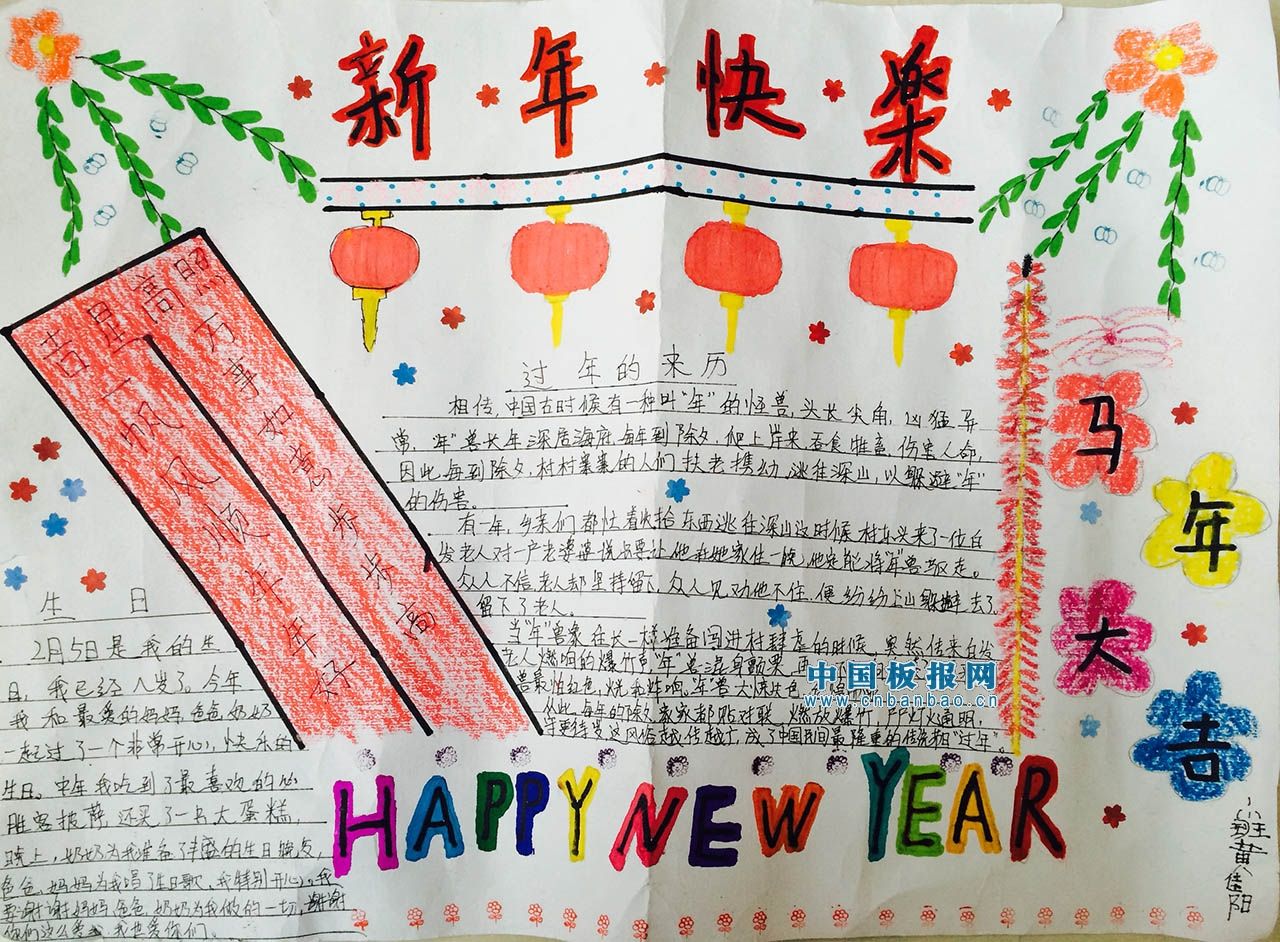 新年快乐
吉星高照
一帆风顺年年好
万事如意步步高
过年的来历
相传,中国古时候有一种叫“年”的怪兽,头长尖角,凶猛异
常,“年”兽长年深居海底,每年到除夕,爬上岸来吞食牲畜伤害人命,
因此,每到除夕,村村寨寨的人们扶老携幼,逃往深山,以躲避“年”
的伤害。
有一年,乡亲们都忙着收拾东西逃往深山这时候村东头来了一位白
发老人对一户老婆婆说只要让他在她家住一晚,他定能将“年”兽驱走。
众人不信,老人却坚持留下,众人见劝他不住,便纷纷上山躲避去了
留下了老人。
当“年”兽象往长一样准备闯进村肆虐的时候,突然传来白发
老人燃响的爆竹声“年”兽浑身颤栗,再
兽最怕红色,
从此,每年的除夕家家都贴对联、燃放爆竹,户户灯火通明,
守更待岁这风俗越传越广,成了中国民间最隆重的传统节“过年”。
生日
2月5日是我的生
日,我已经八岁了。今年
我和最爱的妈妈,爸爸,奶奶
一起过了一个非常开心,快乐的
生日。中午我吃到了最喜欢的必
胜客披萨,还买了一个大蛋糕,
晚上,奶奶为我准备了丰盛的生日晚饭,
爸爸、妈妈为我唱了生日歌,我特别开心。我
要谢谢妈妈,爸爸,奶奶为我做的一切,谢谢
你们这么爱我,我也爱你们。
马年大吉
HAPPY NEW YEAR
二班黄佳阳
中国板报网
cn.banbao.cn